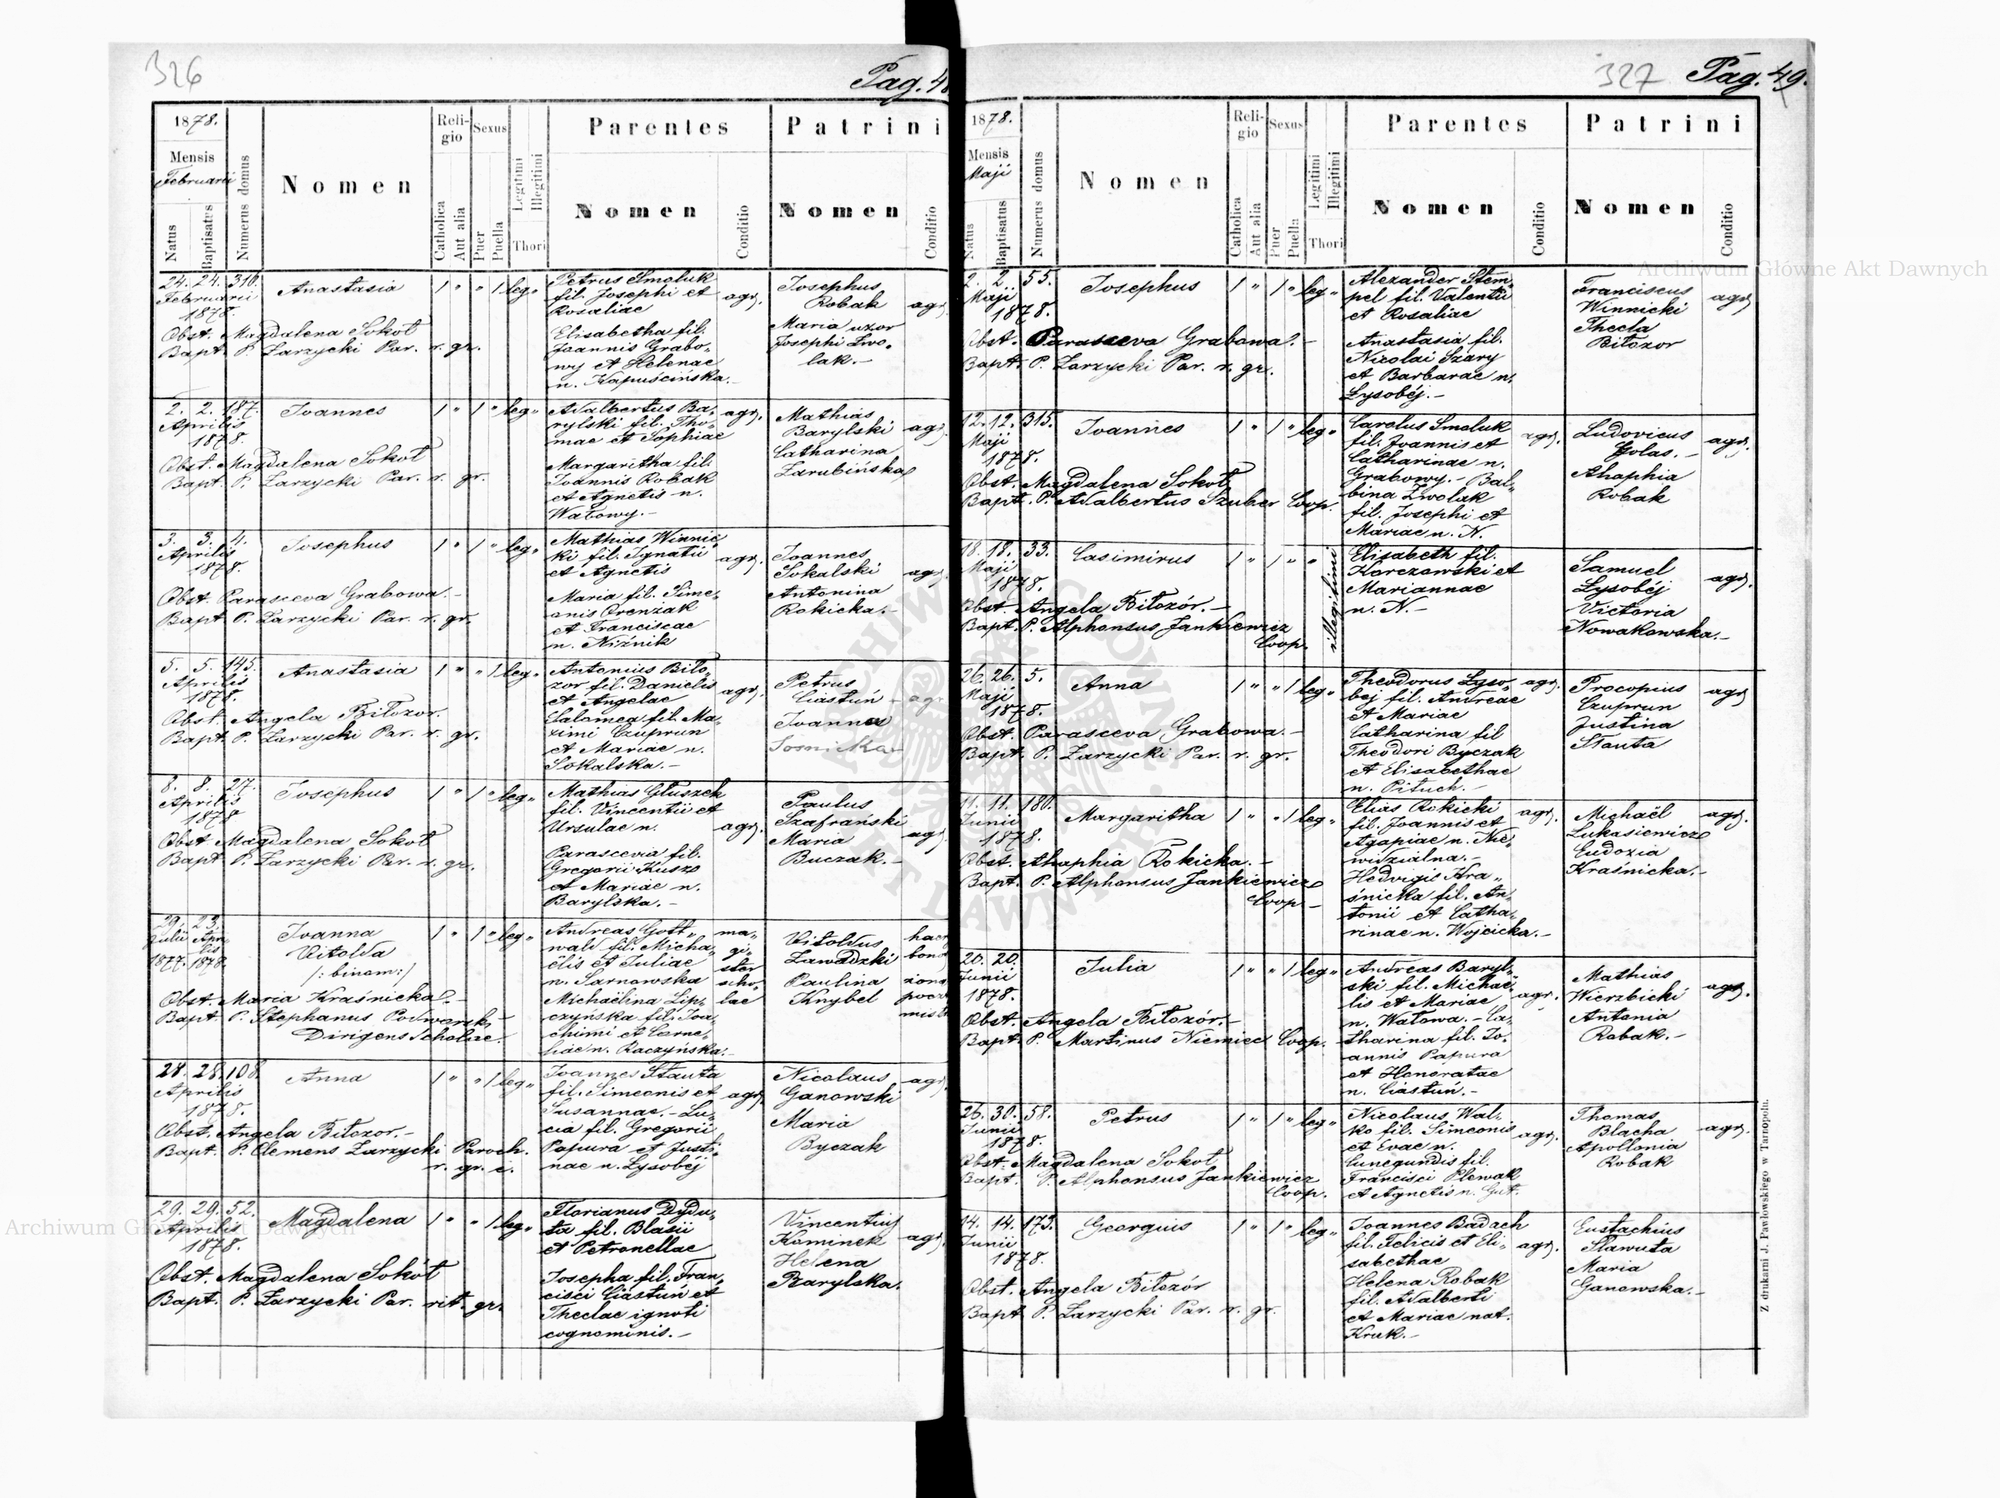 326
Pag. 48
1878.
Mensis
Februarii
Natus
Baptisatus
Numerus domus
Nomen
Religio
Catholica
Aut alia
Sexus
Puer
Puella
Legitimi
Illegitimi
Thori
Parentes
Nomen
Conditio
Patrini
Nomen
Conditio
24. 24. 310. Anastasia 1 " " 1 leg.
Februarii
1878.
Obst. Magdalena Sokoł
Bapt. P. Zarzycki Par. r. gr.
Petrus Smoluk
fil. Josephi et
Rosaliae
Elisabetha fil.
Joannis Grabo-
wy et Helenae
n. Kapuścińska.-
agr.
Josephus
Robak
Maria uxor
Josephi Zwo-
lak.-
agr.
2. 2. 187. Joannes 1 " 1 " leg.
Aprilis
1878.
Obst. Magdalena Sokoł
Bapt. P. Zarzycki Par. r. gr.
Adalbertus Ba-
rylski fil. Tho-
mae et Sophiae
Margaritha fil.
Joannis Robak
et Agnetis n.
Watowy.-
agr.
Mathias
Barylski
Catharina
Zarubińska
agr.
3. 3. 4. Josephus 1 " 1 " leg.
Aprilis
1878.
Obst. Parasceva Grabowa.-
Bapt. P. Zarzycki Par. r. gr.
Mathias Winnic-
ki fil. Ignatii
et Agnetis
Maria fil. Sime-
onis Orenzak
et Franciscae
n. Niżnik
agr.
Joannes
Sokalski
Antonina
Rokicka.-
agr.
5. 5. 145. Anastasia 1 " " 1 leg.
Aprilis
1878.
Obst. Angela Bitozor.
Bapt. P. Zarzycki Par. r. gr.
Antonius Bito-
zor fil. Danielis
et Angelae
Salomea fil. Ma-
ximi Czuprun
et Mariae n.
Sokalska.-
agr.
Petrus
Ciastuń
Joanna
Sosnicka
agr
8. 8. 27. Josephus 1 " 1 " leg.
Aprilis
1878
Obst Magdalena Sokoł
Bapt P. Zarzycki Par. r. gr.
Mathias Głuszek
fil. Vincentii et
Ursulae n.
Parascevia fil.
Gregorii Kusz
et Mariae n.
Barylska.-
agr.
Paulus
Szafrański
Maria
Buczak.-
agr.
29. 23. Joanna 1 " " 1 leg.
Julii Aprilis Vitolda
1877. 1878. /:binom:/
Obst. Maria Kraśnicka.-
Bapt P. Stephanus
Dirigens Scholae.
Andreas Gott-
wald fil. Micha-
ëlis et Juliae
n. Sarnowska
Michaëlina Lip-
czyńska fil. Joa-
chimi et Corne-
liae n. Raczyńska.-
ma-
gi-
ster
scho-
lae
Vitoldus
Zawadzki
Paulina
Knybel
28. 28. 108. Anna 1 " " 1 leg.
Aprilis
1878.
Obst. Angela Bitozor.-
Bapt. P. Clemens Zarzycki Paroch.
r. gr. i.
Joannes Stauta
fil. Simeonis et
Susannae.- Lu-
cia fil. Gregorii
Papura et Justi-
nae n. Łysobéj
agr.
Nicolaus
Ganowski
Maria
Byczak
agr.
29. 29. 52. Magdalena 1 " " 1 leg.
Aprilis
1878.
Obst. Magdalena Sokół
Bapt. P. Zarzycki Par. rit. gr.
Florianus Dydu-
ta fil. Blasii
et Petronellae
Josepha fil. Fran-
cisci Ciastuń et
Theclae ignoti
cognominis.-
Vincentius
Kominek
Helena
Barylska.
agr.
327
Pag. 49.
1878.
Mensis
Maji
Natus
Baptisatus
Numerus domus
Nomen
Religio
Catholica
Aut alia
Sexus
Puer
Puella
Legitimi
Illegitimi
Thori
Parentes
Nomen
Conditio
Patrini
Nomen
Conditio
2. 2. 55. Josephus 1 " 1 " leg.
Maji
1878.
Obst. Parasceva Grabowa.-
Bapt. P. Zarzycki Par. r. gr.
Alexander Stem-
pel fil. Valentii
et Rosaliae
Anastasia fil.
Nicolai Szary
et Barbarae n.
Łysobéj.-
Franciscus
Winnicki
Thecla
Bitozor
agr.
12. 12. 315. Joannes 1 " 1 " leg.
Maji
1878.
Obst. Magdalena Sokoł
Bapt. P. Adalbertus Szuber Coop.
Carolus Smoluk
fil. Joannis et
Catharinae n.
Grabowy.- Bal-
bina Zwolak
fil. Josephi et
Mariae n. N.
agr.
Ludovicus
Golas.-
Ahaphia
Robak
agr.
18. 18. 33. Casimirus 1 " 1 " "
Maji
1878.
Obst. Angela Bitozór.-
Bapt. P. Alphonsus Jankiewicz
Coop.
illegitimi
Elisabeth fil.
Korczowski et
Mariannae
n. N.-
Samuel
Łysobéj
Victoria
Nowakowska.-
agr.
26. 26. 5. Anna 1 " " 1 leg.
Maji
1878.
Obst. Parasceva Grabowa.-
Bapt. P. Zarzycki Par. r. gr.
Theodorus Łyso-
bej fil. Andreae
et Mariae
Catharina fil
Theodori Byczak
et Elisabethae
n. Pituch.-
agr.
Procopius
Czuprun
Justina
Stauta
agr.
11. 11. 180. Margaritha 1 " " 1 leg.
Junii
1878.
Obst. Ahaphia Rokicka.-
Bapt. P. Alphonsus Jankiewicz
Coop.-
Elias Rokicki
fil. Joannis et
Agapiae n. Nie-
widzialna.-
Hedvigis Kra-
śnicka fil. An-
tonii et Catha-
rinae n. Wojcicka.-
agr.
Michaël
Łukasiewicz
Eudoxia
Kraśnicka.-
agr.
20. 20. Julia 1 " " 1 leg.
Junii
1878.
Obst. Angela Bitozór.-
Bapt. P. Martinus Niemiec Coop.
Andreas Baryl-
ski fil. Michaë-
lis et Mariae
n. Watowa.- Ca-
tharina fil. Jo-
annis Papura
et Honoratae
n. Ciastuń.-
agr.
Mathias
Wierzbicki
Antonia
Robak.-
agr.
26. 30. 58. Petrus 1 " 1 " leg.
Junii
1878.
Obst. Magdalena Sokoł
Bapt. P. Alphonsus Jankiewicz
Coop.
Nicolaus Wal-
ko fil. Simeonis
et Evae n.
Cunegundis fil.
Francisci Plewak
et Agnetis n. Gut.
agr.
Thomas
Blacha
Apollonia
Robak
agr.
14. 14. 173. Georgius 1 " 1 " leg.
Junii
1878.
Obst. Angela Bitozór
Bapt P. Zarzycki Par. r. gr.
Joannes Badach
fil. Felicis et Eli-
sabethae
Helena Robak
fil. Adalberti
et Mariae nat.
Kruk.-
agr.
Eustachius
Stawuta
Maria
Ganowska.-
Z drukarni J. Pawłowskiego w Tarnopolu.
Archiwum Główne Akt Dawnych
Archiwum Główne Akt Dawnych